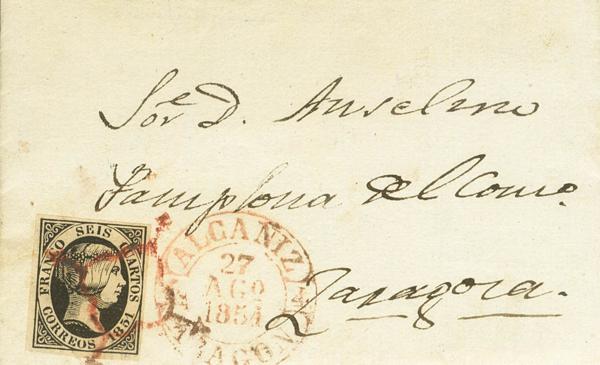 Sor. D. Anselmo
Pamplona del Como.
Zaragoza.
FRANCO SEIS CUARTOS
CORREOS 1851
ALCAÑIZ
27
AGO
1851
ARAGON